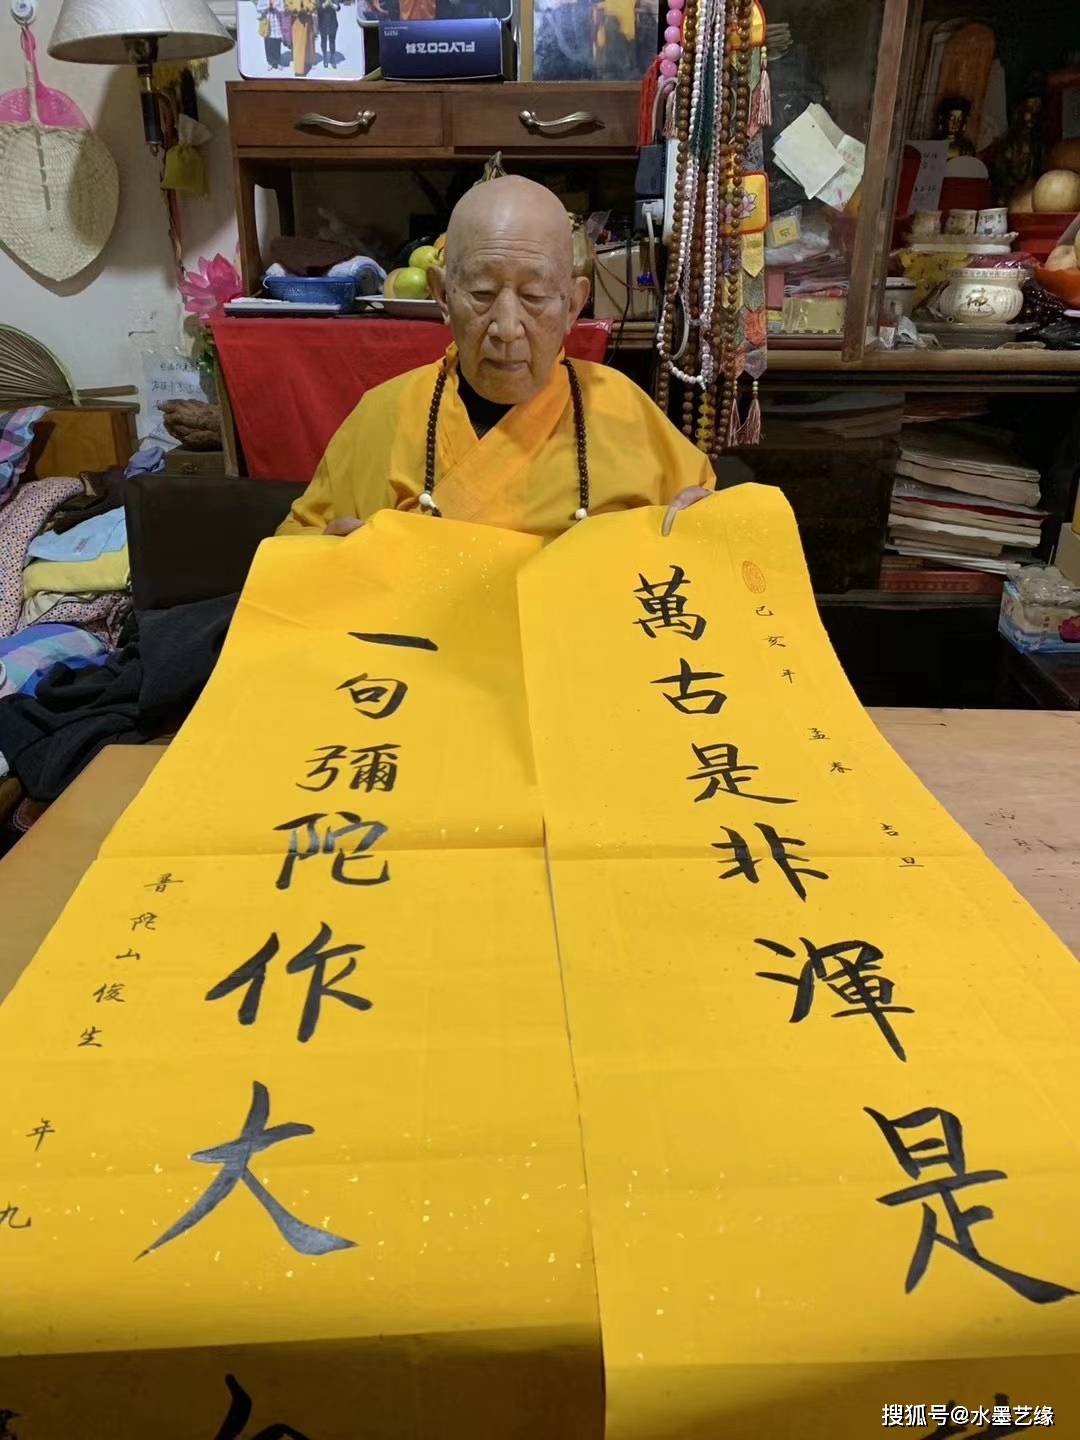 萬古是非渾是
己亥年孟春吉旦
一句彌陀作大
普陀山俊生
年
九
FLYCO飞科
搜狐号@水墨艺缘